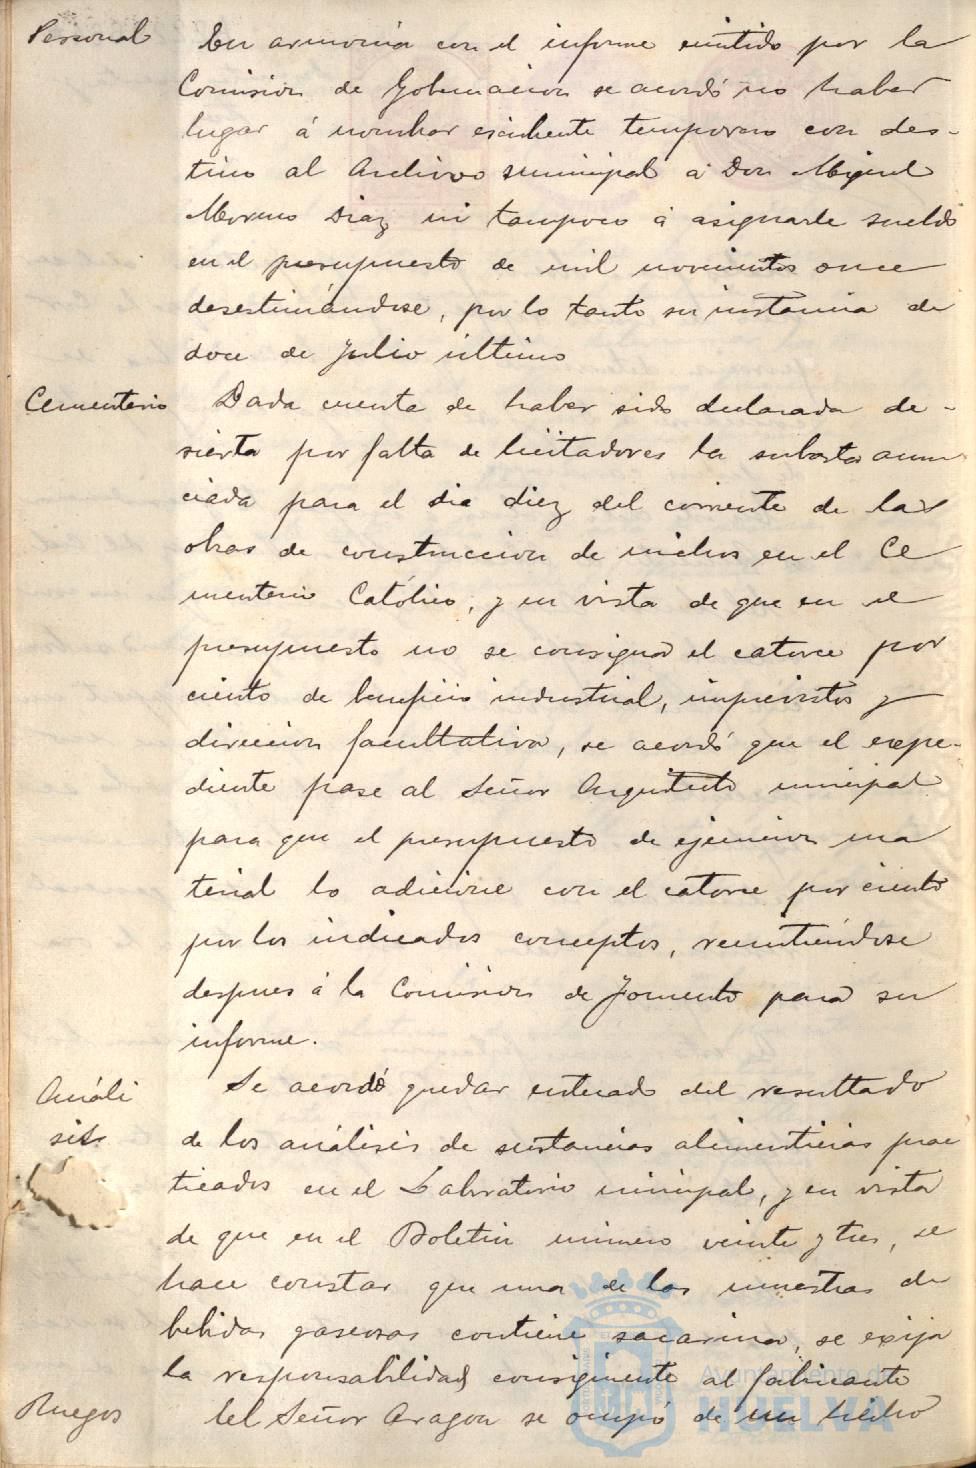 Personal
En armonia con el informe emitido por la
Comision de Gobernacion se acordó no haber
lugar á nombrar escribiente temporero con des-
tino al Archivo municipal á Don Miguel
Moreno Diaz, ni tampoco á asignarle sueldo
en el presupuesto de mil novecientos once
desestimándose, por lo tanto su instancia de
doce de Julio último
Cementerio
Dada cuenta de haber sido declarada de-
sierta por falta de licitadores la subasta anun
ciada para el dia diez del corriente de las
obras de construccion de nichos en el Ce
menterio Católico, y en vista de que en el
presupuesto no se consignó el catorce por
ciento de beneficio industrial, imprevistos y
direccion facultativa, se acordó que el expe-
diente pase al Señor Arquitecto municipal
para que el presupuesto de ejecucion ma
terial lo adicione con el catorce por ciento
por los indicados conceptos, remitiéndose
despues á la Comision de Fomento para su
informe.
Análi
sis
Se acordó quedar enterado del resultado
de los análisis de sustancias alimenticias prac
ticados en el Laboratorio municipal, y en vista
de que en el Boletin número veinte y tres, se
hace constar que una de las muestras de
bebidas gaseosas contiene sacarina, se exija
la responsabilidad consiguiente al fabricante
Ruegos
El Señor Aragon se ocupó de un hecho
Ayuntamiento de
HUELVA